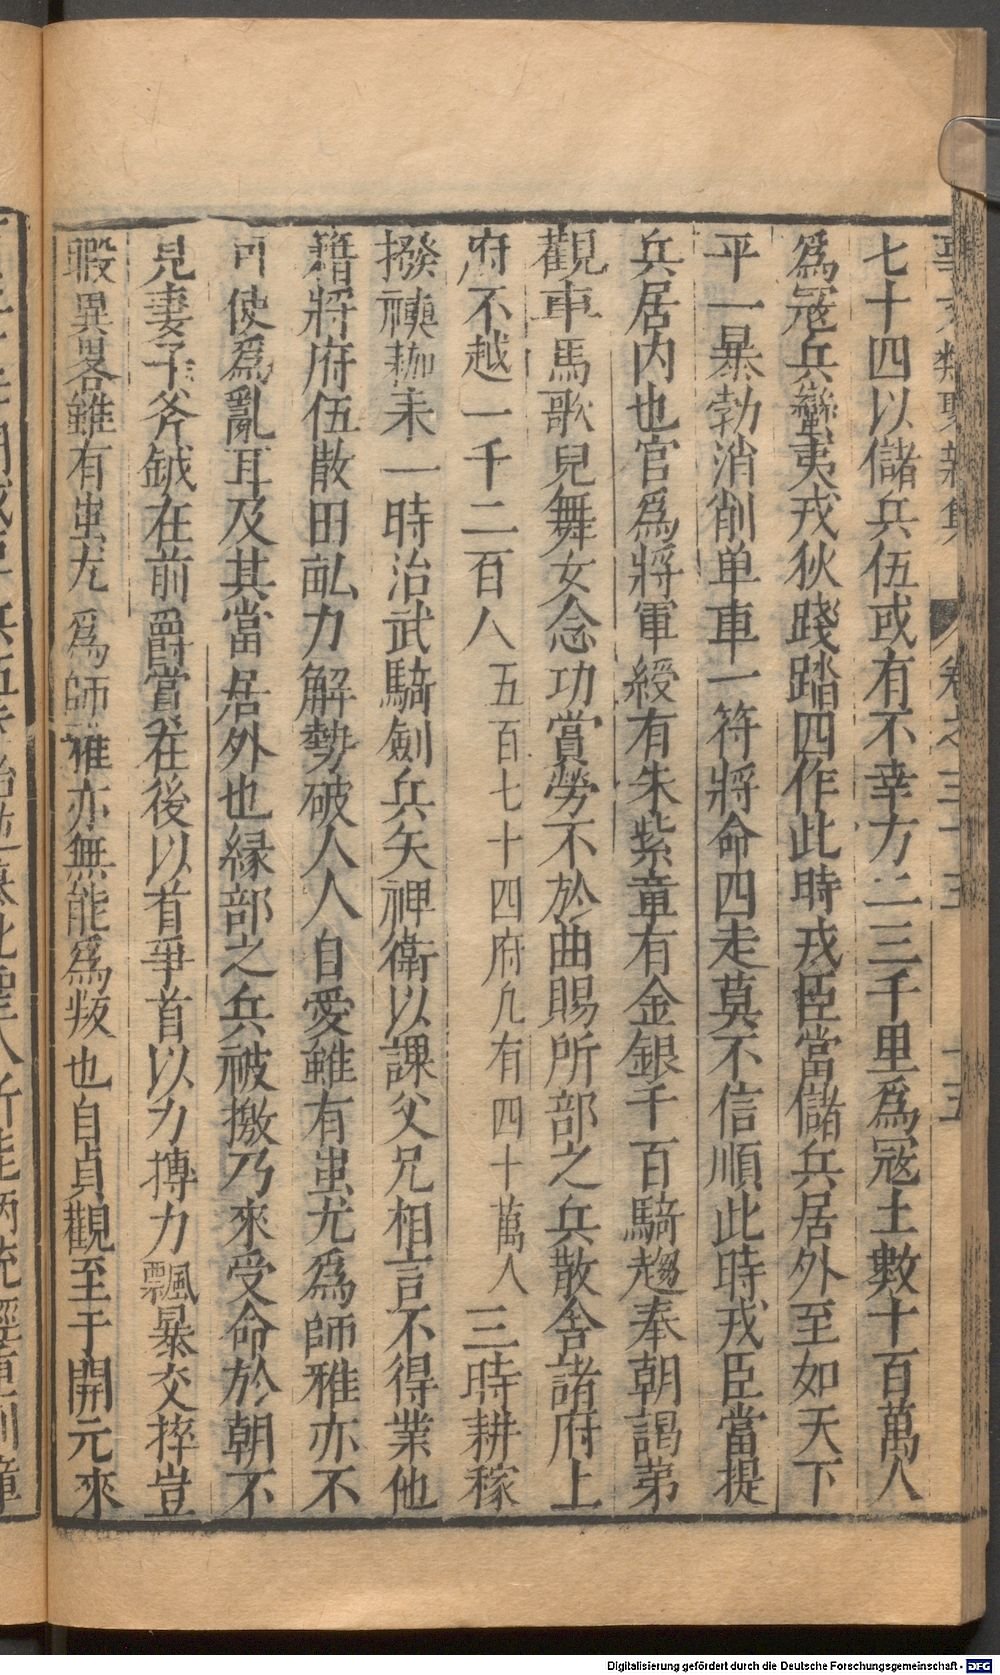 七十四以儲兵伍或有不幸方二三千里爲冦土數十百萬人
爲冦兵蠻夷戎狄踐踏四作此時戎臣當儲兵居外至如天下
平一暴勃消削单車一符將命四走莫不信順此時戎臣當提
兵居内也官爲將軍綬有朱紫章有金銀千百騎趨奉朝謁第
觀車馬歌兒舞女念功賞勞不於曲賜所部之兵散舎諸府上
府不越一千二百人五百七十四府凡有四十萬人三時耕稼
撥襫耞耒一時治武騎劍兵矢裨衛以課父兄相言不得業他
籍將府伍散田畝力解勢破人人自愛雖有蚩尤爲師雅亦不
可使爲亂耳及其當居外也縁部之兵被檄乃來受命於朝不
見妻子斧鉞在前爵賞在後以首爭首以力搏力飄暴交捽豈
暇異畧雖有蚩尤爲師雅亦無能爲叛也自貞觀至于開元來
卷之三十五
十五
Digitalisierung gefördert durch die Deutsche Forschungsgemeinschaft - DFG